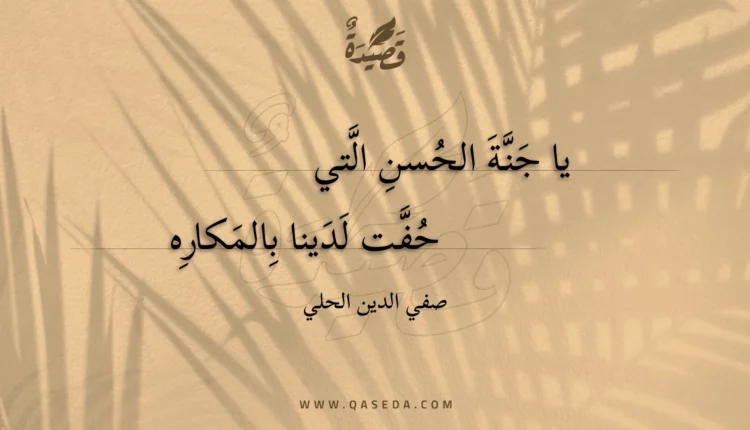 قَصِيدَةٌ
يا جَنَّةَ الحُسنِ الَّتي
حُفَّت لَدَينا بِالمَكارِهِ
صفي الدين الحلي
WWW.QASEDA.COM